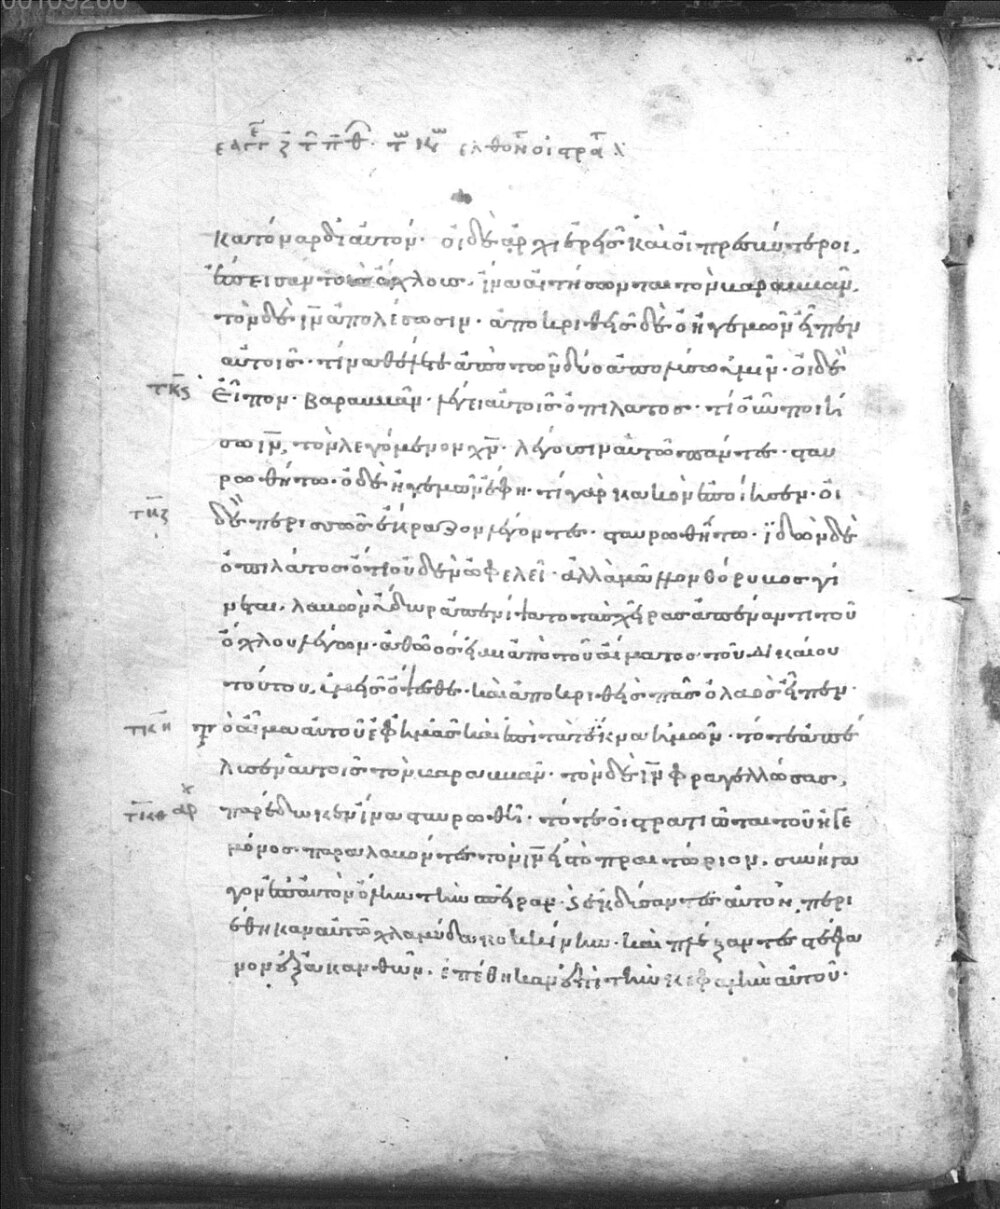 κατ' ὄναρ δι' αὐτόν· οἱ δὲ ἀρχιερεῖς καὶ οἱ πρεσβύτεροι,
ἔπεισαν τοὺς ὄχλους, ἵνα αἰτήσωνται τὸν βαραββᾶν,
τὸν δὲ ιν ἀπολέσωσιν· ἀποκριθεὶς δὲ ὁ ἡγεμὼν εἶπεν
αὐτοῖς· τίνα θέλετε ἀπὸ τῶν δύο ἀπολύσω ὑμῖν· οἱ δὲ
τκς εἶπον· βαραββᾶν· λέγει αὐτοῖς ὁ πιλάτος· τί οὖν ποιή
σω ιν, τὸν λεγόμενον χν· λέγουσιν αὐτῶ πάντες· σταυ
ρωθήτω· ὁ δὲ ἡγεμὼν ἔφη· τί γὰρ κακὸν ἐποίησεν· οἱ
τκζ δὲ περισσῶς ἔκραζον λέγοντες· σταυρωθήτω· ἰδὼν δὲ
ὁ πιλάτος ὅτι οὐδὲν ὠφελεῖ· ἀλλὰ μᾶλλον θόρυβος γί
νεται, λαβὼν ὕδωρ ἀπενίψατο τὰς χεῖρας ἀπέναντι τοῦ
ὄχλου λέγων· ἀθῶός εἰμι ἀπὸ τοῦ αἵματος τοῦ δικαίου
τούτου, ὑμεῖς ὄψεσθε· καὶ ἀποκριθεὶς πᾶς ὁ λαὸς εἶπεν·
τκη τὸ αἷμα αὐτοῦ ἐφ' ἡμᾶς καὶ ἐπὶ τὰ τέκνα ἡμῶν· τότε ἀπέ
λυσεν αὐτοῖς τὸν βαραββᾶν· τὸν δὲ ιν φραγελλώσας,
τκθ αρχ παρέδωκεν ἵνα σταυρωθῆ· τότε οἱ στρατιῶται τοῦ ἡγε
μόνος παραλαβόντες τὸν ιν εἰς τὸ πραιτώριον, συνήγα
γον ἐπ' αὐτὸν ὅλην τὴν σπεῖραν· καὶ ἐκδύσαντες αὐτὸν, περι
έθηκαν αὐτῶ χλαμύδα κοκκίνην· καὶ πλέξαντες στέφα
νον ἐξ ἀκανθῶν, ἐπέθηκαν ἐπὶ τὴν κεφαλὴν αὐτοῦ·